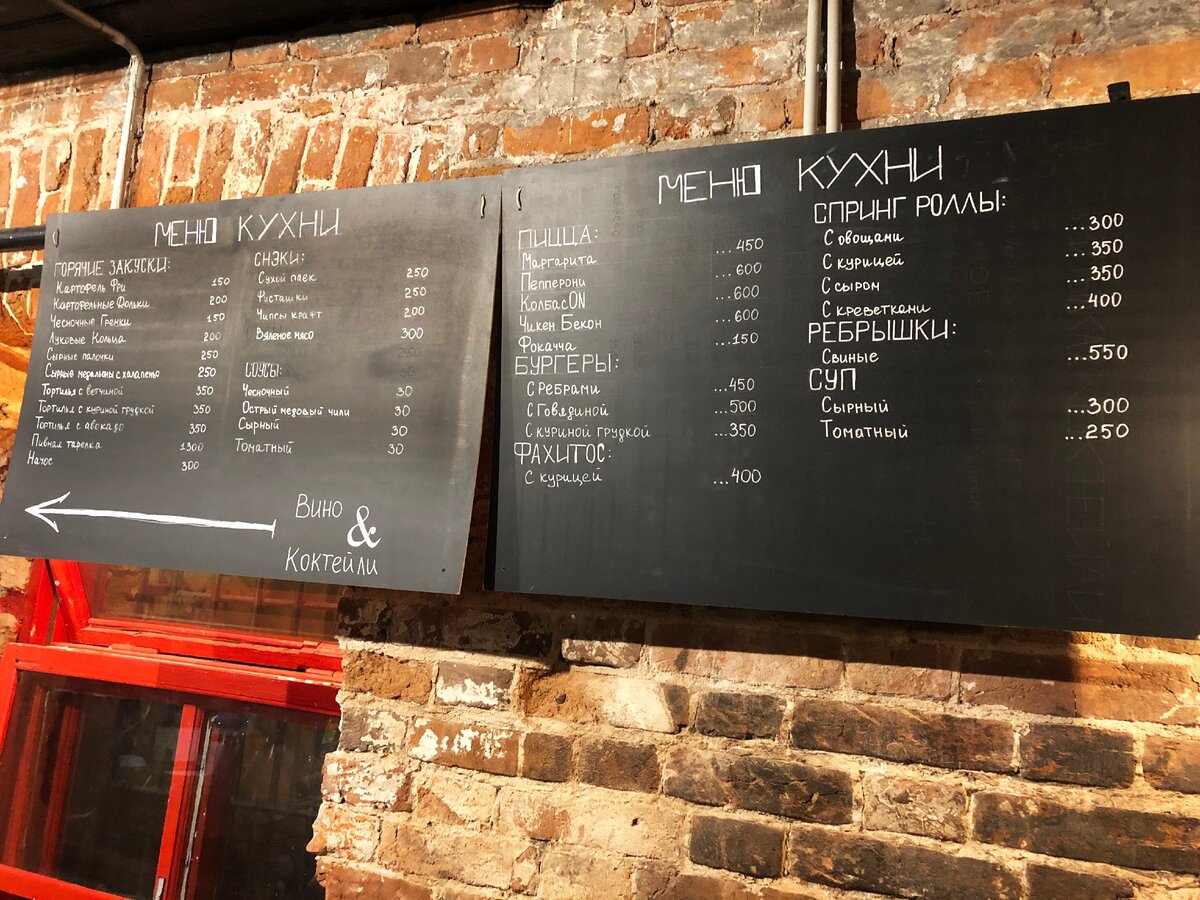 МЕНЮ КУХНИ
ГОРЯЧИЕ ЗАКУСКИ:
Картофель Фри 150
Картофельные Дольки 200
Чесночные Гренки 150
Луковые Кольца 200
Сырные палочки 250
Сырные медальоны с халапеньо 250
Тортилья с ветчиной 350
Тортилья с куриной грудкой 350
Тортилья с авокадо 350
Пивная тарелка 1300
Начос 300
СНЭКИ:
Сухой паек 250
Фисташки 250
Чипсы крафт 200
Вяленое мясо 300
СОУСЫ:
Чесночный 30
Острый медовый чили 30
Сырный 30
Томатный 30
Вино & Коктейли
МЕНЮ КУХНИ
ПИЦЦА:
Маргарита ...450
Пепперони ...600
КолбасON ...600
Чикен Бекон ...600
Фокачча ...150
БУРГЕРЫ:
С Ребрами ...450
С Говядиной ...500
С куриной грудкой ...350
ФАХИТОС:
С курицей ...400
СПРИНГ РОЛЛЫ:
С овощами ...300
С курицей ...350
С сыром ...350
С креветками ...400
РЕБРЫШКИ:
Свиные ...550
СУП
Сырный ...300
Томатный ...250